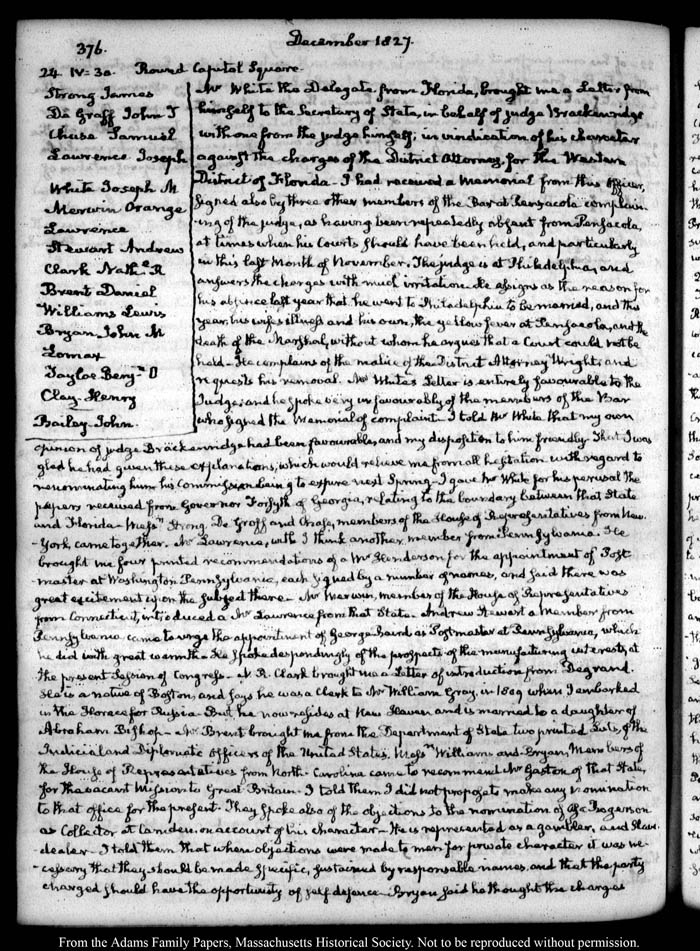 376.
December 1827.
24. IV:30. Round Capitol Square.
Strong James
De Graff John I
Chase Samuel
Lawrence Joseph
White Joseph M
Merwin Orange
Lawrence
Stewart Andrew
Clark Nathl. R
Brent Daniel
Williams Lewis
Bryan John H
Lomax
Tayloe Benjn. O
Clay Henry
Bailey John.
Mr White the Delegate from Florida, brought me a Letter from
himself to the Secretary of State, in behalf of judge Brackenridge
with one from the judge himself; in vindication of his character
against the charges of the District Attorney, for the Western
District of Florida— I had received a Memorial from this Officer,
signed also by three other members of the Bar at Pensacola complain-
ing of the judge, as having been repeatedly absent from Pensacola,
at times when his Courts should have been held, and particularly
in this last Month of November. The judge is at Philadelphia, and
answers the charges with much irritation. He assigns as the reason for
his absence last year that he went to Philadelphia to be married, and this
year, his wife's illness and his own, the yellow fever at Pensacola, and the
death of the Marshal, without whom he argues that a Court could not be
held— He complains of the malice of the District Attorney Wright, and
requests his removal. Mr White's Letter is entirely favourable to the
Judge; and he spoke very unfavourably of the members of the Bar
who signed the Memorial of complaint— I told Mr White that my own
opinion of judge Brackenridge had been favourable, and my disposition to him friendly. That I was
glad he had given these explanations, which would relieve me from all hesitation with regard to
renominating him; his Commission being to expire next Spring— I gave Mr White for his perusal the
papers received from Governor Forsyth of Georgia, relating to the boundary between that State
and Florida— Messrs. Strong, De Graff and Chase, members of the House of Representatives from New-
York, came together. Mr Lawrence, with I think another member from Pennsylvania. He
brought me four printed recommendations of a Mr Henderson for the appointment of Post
master at Washington Pennsylvania, each signed by a number of names, and said there was
great excitement upon the subject there— Mr Merwin, member of the House of Representatives
from Connecticut, introduced a Mr Lawrence from that State. Andrew Stewart a Member from
Pennsylvania came to urge the appointment of George Baird as Postmaster at Pennsylvania, which
he did with great warmth— He spoke despondingly of the prospects of the manufacturing interest, at
the present Session of Congress— N. R. Clark brought me a Letter of introduction from Degrand.
He is a native of Boston, and says he was a Clerk to Mr William Gray, in 1809 when I embarked
in the Horace for Russia— But he now resides at New Haven and is married to a daughter of
Abraham Bishop— Mr Brent brought me from the Department of State two printed Lists, of the
Judicial and Diplomatic Officers of the United States. Messrs. Williams and Bryan, Members of
the House of Representatives from North-Carolina came to recommend Mr Gaston of that State,
for the vacant Mission to Great Britain. I told them I did not propose to make any nomination
to that office for the present. They spoke also of the objections to the nomination of
as Collector at Camden, on account of his character— He is represented as a gambler, and Slave
dealer— I told them that when objections were made to men for private character it was ne-
cessary that they should be made specific, sustained by responsable names, and that the party
charged should have the opportunity of self defence— Bryan said he thought the charges
From the Adams Family Papers, Massachusetts Historical Society. Not to be reproduced without permission.